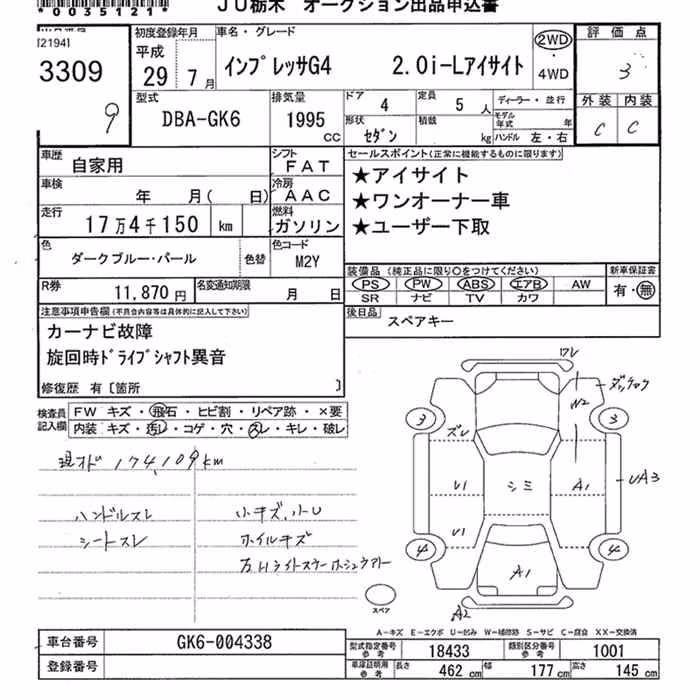 *0035121*
JU栃木 オークション出品申込書
(21941
3309
9
初度登録年月
平成
29年 7月
車名・グレード
インプレッサG4 2.0i-Lアイサイト
2WD
・
4WD
評価点
3
外装 内装
C C
型式
DBA-GK6
排気量
1995
CC
ドア 4
定員 5人
ディーラー・並行
形状 セダン
積載 kg
モデル年式 年
ハンドル 左・右
車歴 自家用
シフト FAT
車検 年 月( 日)
冷房 AAC
走行 17万4千150 km
燃料 ガソリン
色 ダークブルー・パール
色替
色コード M2Y
R券 11,870円
名変通知期限 月 日
セールスポイント(正常に機能するものに限ります)
★アイサイト
★ワンオーナー車
★ユーザー下取
装備品(純正品に限り○をつけてください)
PS PW ABS エアB AW
SR ナビ TV カワ
新車保証書
有・無
後日品 スペアキー
注意事項申告欄(不具合内容等は具体的に記入して下さい)
カーナビ故障
旋回時ドライブシャフト異音
修復歴 有〔箇所 〕
検査員記入欄
FW キズ・飛石・ヒビ割・リペア跡・×要
内装 キズ・汚レ・コゲ・穴・スレ・キレ・破レ
現オド 174,109km
ハンドルスレ
シートスレ
小キズ、小U
ホイルキズ
ワレ
W2
ズレ
3 3
U1 シミ A1
UA3
U1
4 4
A1
A2
スペア
A-キズ E-エクボ U-凹み W-補修跡 S-サビ C-腐食 XX-交換済
車台番号 GK6-004338
登録番号
型式指定番号 参考 18433
類別区分番号 参考 1001
車庫証明用 参考 長さ 462cm 幅 177cm 高さ 145cm